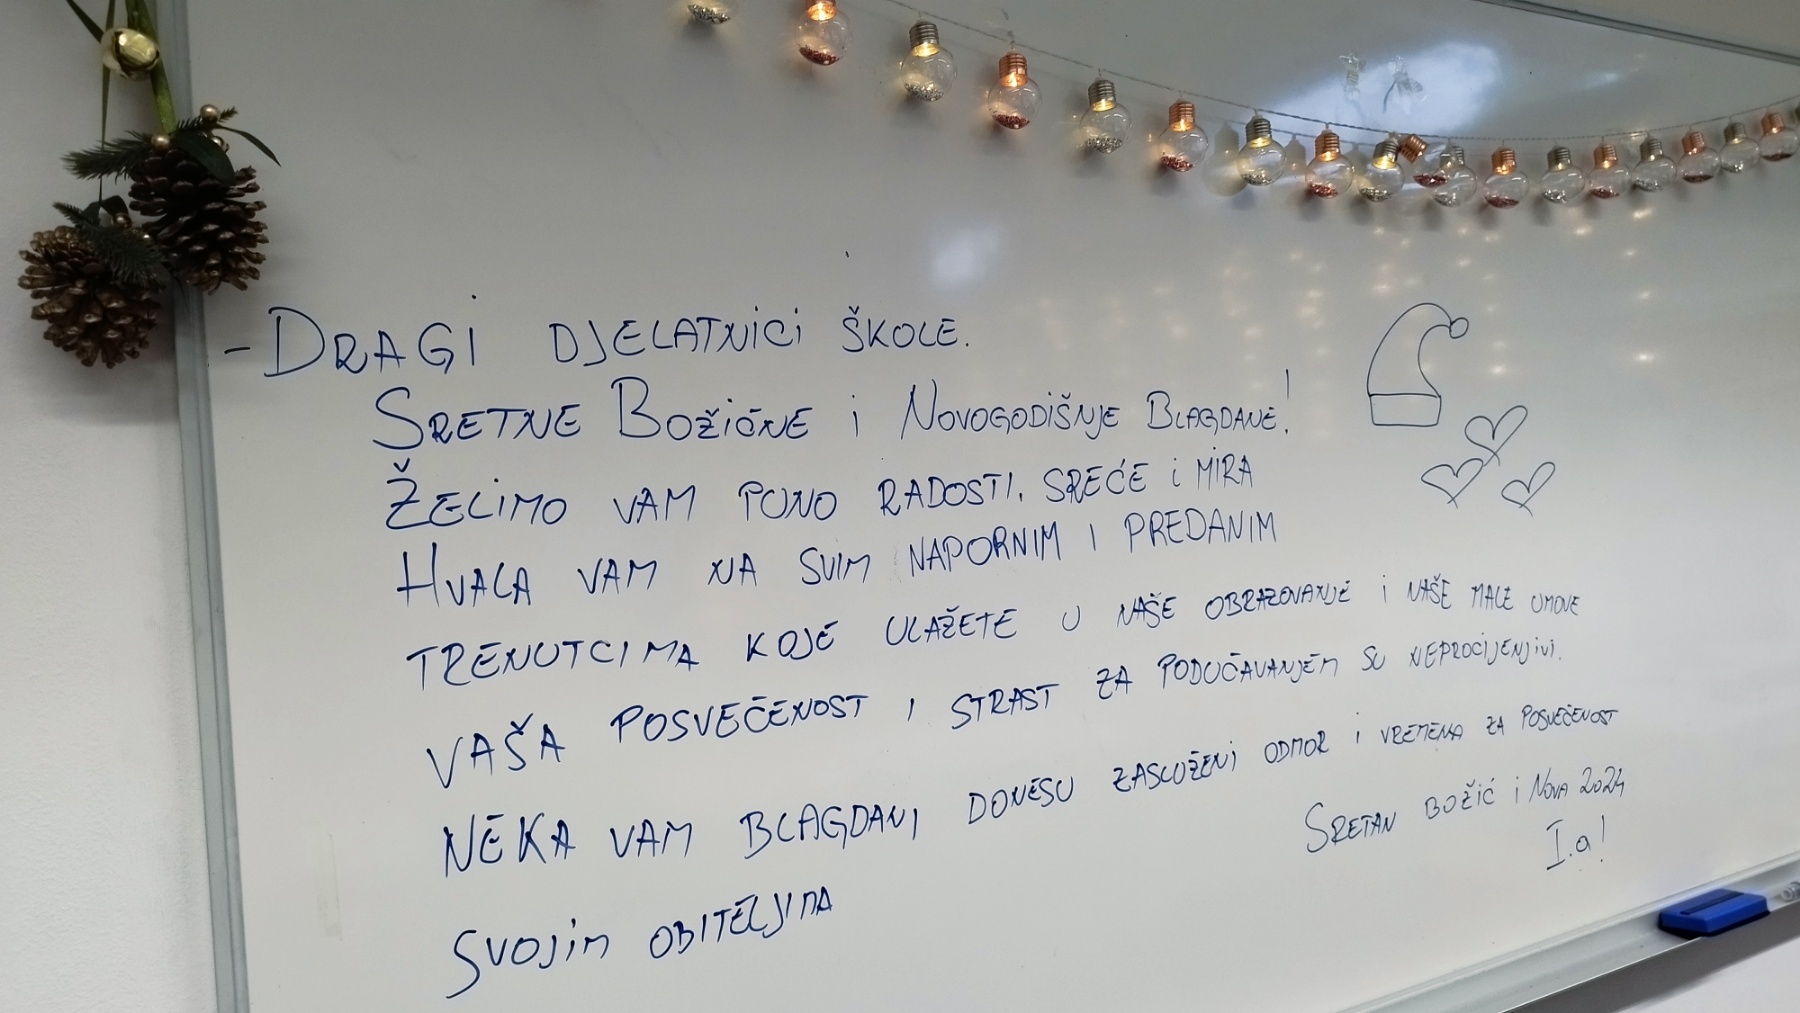 - DRAGI DJELATNICI ŠKOLE.
SRETNE BOŽIČNE i NOVOGODIŠNJE BLAGDANE!
ŽELIMO VAM PUNO RADOSTI, SREĆE i MIRA
HVALA VAM NA SVIM NAPORNIM I PREDANIM
TRENUTCIMA KOJE ULAŽETE U NAŠE OBRAZOVANJE i NAŠE MALE UMOVE
VAŠA POSVEČENOST I STRAST ZA PODUČAVANJEM SU NEPROCIJENJIVI.
NEKA VAM BLAGDANI DONESU ZASLUŽENI ODMOR i VREMENA ZA POSVEČENOST
SVOJIM OBITELJIMA
SRETAN BOŽIĆ i NOVA 2024
I.a!